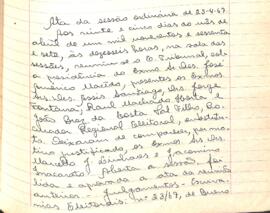 Ata da sessão ordinária de 25-4-67
Aos vinte e cinco dias do mês de
abril de um mil novecentos e sessenta
e sete, às dezesseis horas, na sala das
sessões, reuniu-se o Tribunal, sob
a presidência do Exmo Sr. Des. José
Américo Macêdo, presentes os Exmos
Srs. Des. Assis Santiago, Drs. Jorge
Fontana, Raul Machado Horta e
João Braz da Costa Val Filho, Pro-
curador Regional Eleitoral, substitu-
to. Deixaram de comparecer, por mo-
tivo justificado, os Exmos Srs. Drs.
Marcello J. Linhares e Jacomino
Inacarato. Aberta a sessão, foi
lida e aprovada a ata da reunião
anterior. Julgamentos:
Eleitorais: nº 23/67, de Bueno